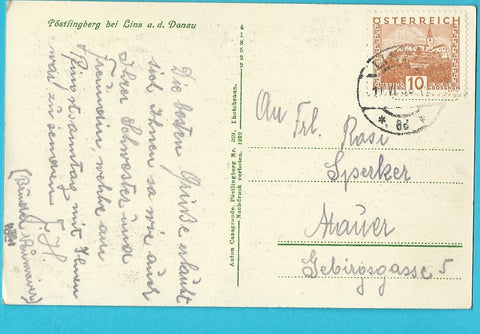 Pöstlingberg bei Linz a. d. Donau
418529
Die besten Grüße erlaubt
sich Ihnen so wie auch
Ihrer Schwester und
Freundin, welche am
Pfingstsonntag mit Ihnen
war zu senden
F. H.
Anton Casagrande, Pöstlingberg Nr. 359. Photobraun.
Nachdruck verboten. 1929
ÖSTERREICH
10
GROSCHEN
An Frl. Rosi
Sperker
Mauer
Gebirgsgasse 5